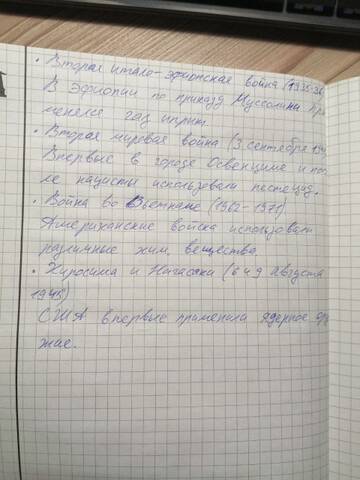 • Вторая итало-эфиопская война (1935-36
В Эфиопии по приказу Муссолини при
менели газ иприт.
• Вторая мировая война (3 сентября 194
Впервые в городе Освенциме и пос
ле нацисты использовали пестецид.
• Война во Вьетнаме (1962-1971).
Американские войска использовали
различные хим. вещества.
• Хиросима и Нагасаки (6 и 9 августа
1945)
США впервые применила ядерное ору
жие.